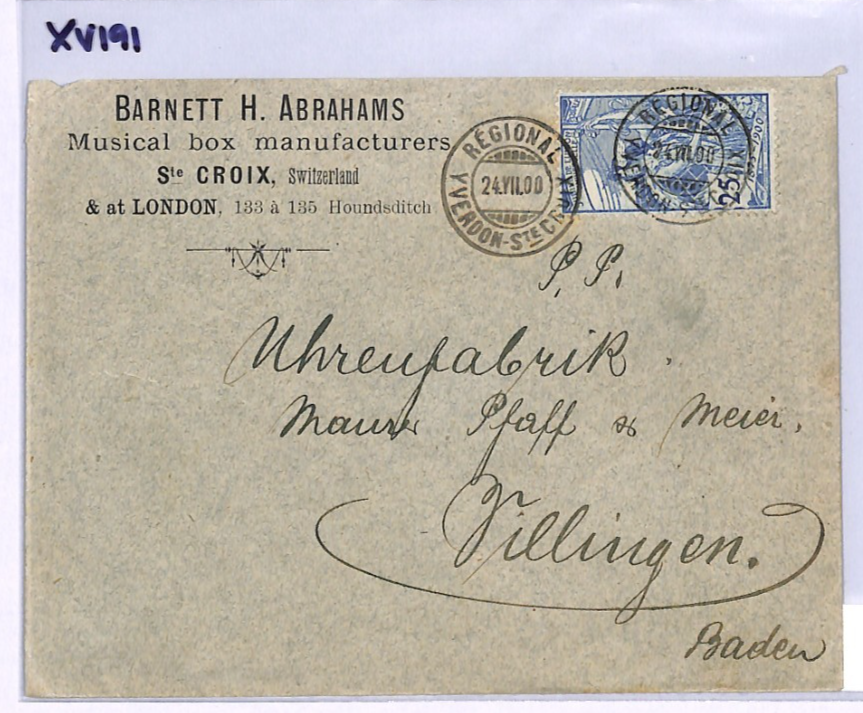 XV191
BARNETT H. ABRAHAMS
Musical box manufacturers
Ste CROIX, Switzerland
& at LONDON, 133 à 135 Houndsditch
RÉGIONAL
24.VII.00
YVERDON-STE CROIX
RÉGIONAL
24.VII.00
YVERDON-STE CROIX
25
1900
P. P.
Uhrenfabrik
Maurer Pfaff & Meier.
Villingen.
Baden